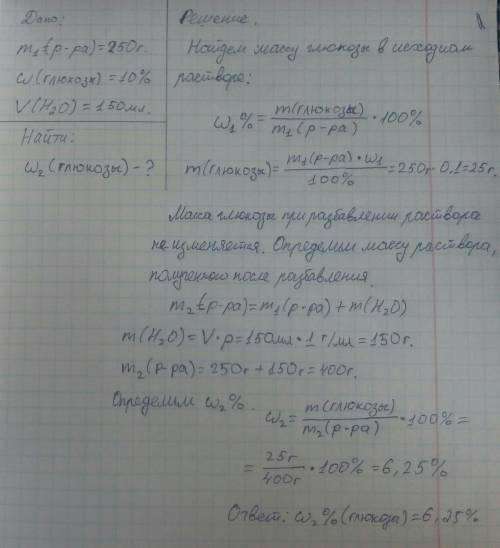 Дано:
m₁(р-ра)=250г.
ω(глюкозы)=10%
V(H₂O)=150мл.
Найти:
ω₂(глюкозы)-?
Решение.
Найдем массу глюкозы в исходном
растворе:
ω₁%= m(глюкозы)/m₁(р-ра) · 100%
m(глюкозы)= m₁(р-ра)·ω₁/100% =250г·0,1=25г.
Масса глюкозы при разбавлении раствора
не изменяется. Определим массу раствора,
полученного после разбавления.
m₂(р-ра)=m₁(р-ра)+m(H₂O)
m(H₂O)=V·ρ=150мл·1г/мл=150г.
m₂(р-ра)=250г+150г=400г.
Определим ω₂%.
ω₂= m(глюкозы)/m₂(р-ра) ·100%=
= 25г/400г ·100%=6,25%
Ответ: ω₂%(глюкоза)=6,25%